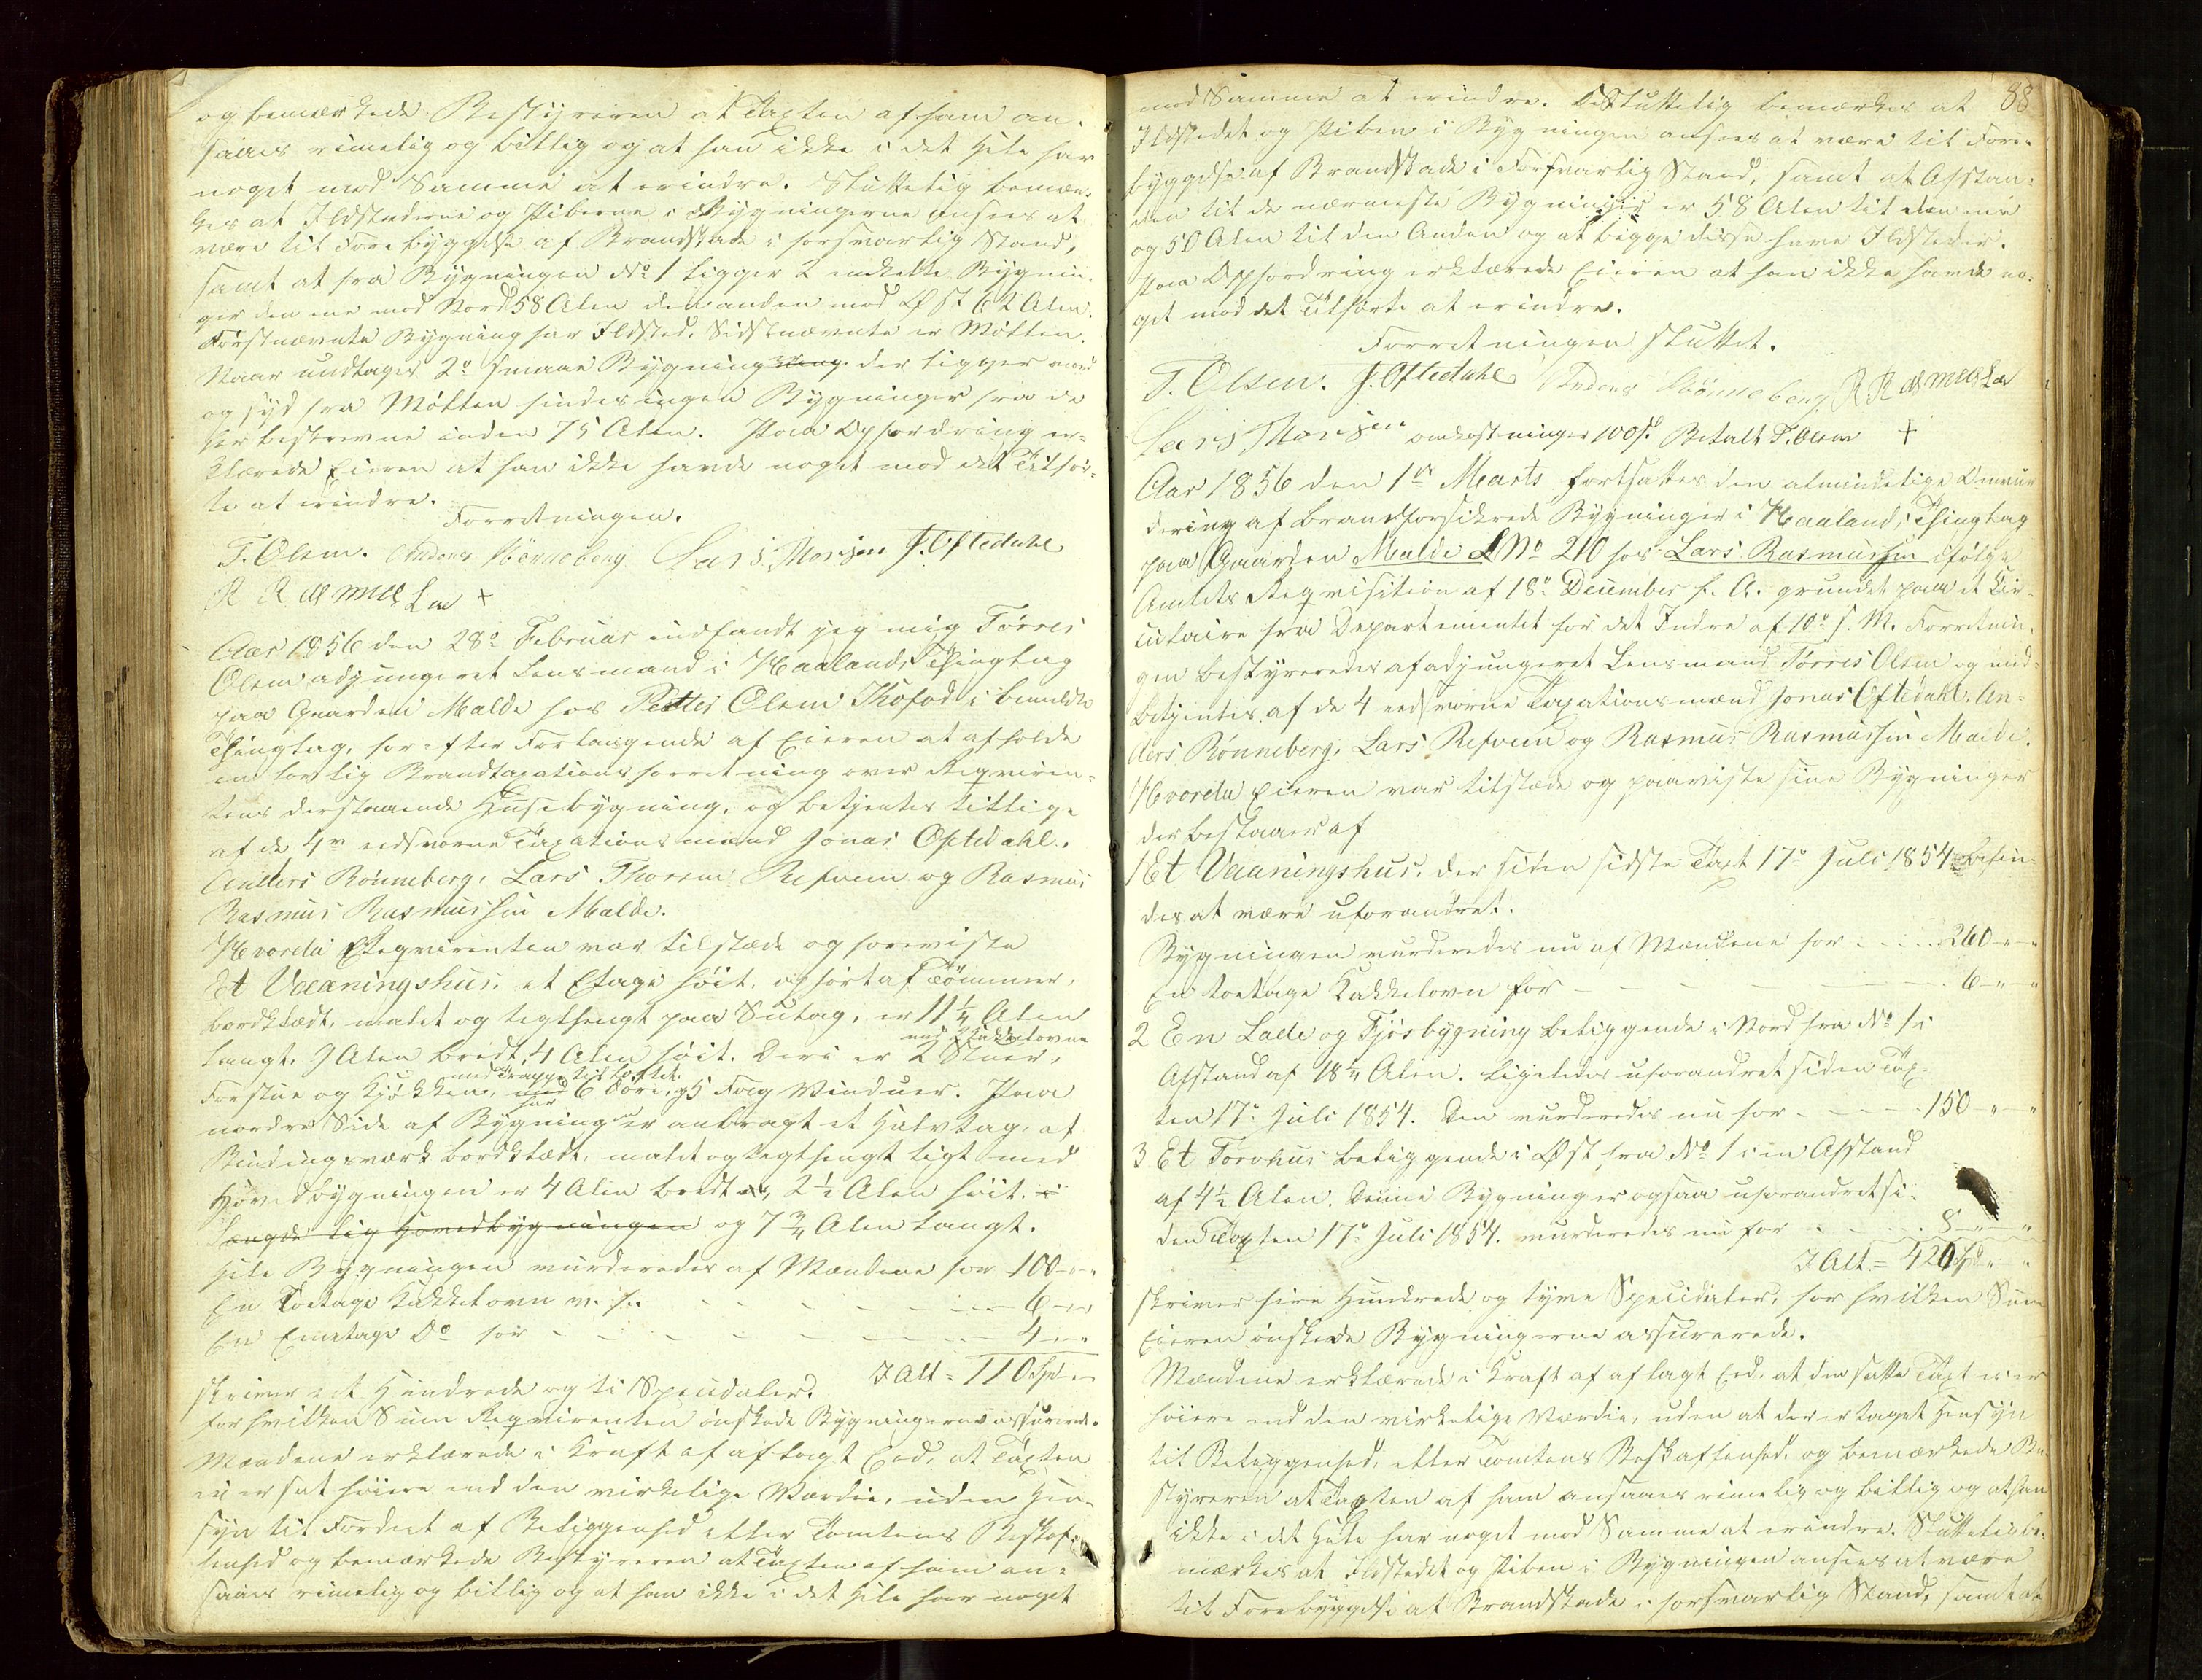 og bemærkede Bestyreren at Taxten af ham an-
saaes rimelig og billig og at han ikke i det Hele har
noget mod Samme at erindre. Sluttelig bemær-
kes at Ildstederne og Piberne i Bygningerne ansees at
være til Forebyggelse af Brandskade i forsvarlig Stand,
samt at fra Bygningen No 1 ligger 2 enkelte Bygnin-
ger den ene mod Nord 58 Alen den anden mod Øst 62 Alen.
Førstnævnte Bygning har Ildsted, Sidstnævnte er Møllen.
Naar undtages 2de smaae Bygning der ligger
og syd fra Møllen findes ingen Bygninger fra de
her beskrevne inden 75 Alen. Paa Opfordring er-
klærede Eieren at han ikke havde noget mod det Tilfør-
te at erindre.
Forretningen.
T. Olsen. Anders Rönneberg Lars Thorsen J. Oftedahl
R R als mus Søn +
Aar 1856 den 28de Februar indfandt jeg mig Törres
Olsen adjungeret Lensmand i Haalands Thinglag
paa Gaarden Malde hos Petter Olsen Thofod i bemeldte
Thinglag, for efter Forlangende af Eieren at afholde
en lovlig Brandtaxationsforretning over Reqviren-
tens derstaaende Husebygning, og betjentes tillige
af de 4re eedsvorne Taxationsmænd Jonas Oftedahl,
Anders Rönneberg, Lars Thorsen Refveim og Rasmus
Rasmus Rasmussen Malde.
Hvorda Reqvirenten var tilstæde og foreviste
Et Vaaningshus, et Etage höit, opført af Tømmer,
bordklædt, malet og teglhengt paa Sutag, er 11 1/4 Alen
langt, 9 Alen bredt, 4 Alen höit. Deri er 2 Stuer, med 2 Kakkelovne
Forstue og Kjøkken, med Trappe til Loftet har 6 Döre, og 5 Fag Vinduer. Paa
nordre Side af Bygningen er anbragt et Halvtag, af
Bindingsværk bordklædt, malet og teglhengt ligt med
Hovedbygningen er 4 Alen bredt, 2 1/2 Alen höit.
Længde lig Hovedbygningen og 7 3/4 Alen langt.
Hele Bygningen vurderedes af Mændene for 100 " "
En Toetage Kakkelovn 6 " "
En Eenetage Do for 4 " "
I Alt = 110 Spd "
skriver et Hundrede og ti Speciedaler.
for hvilken Sum Reqvirenten ønskede Bygningerne assurered.
Mændene erklærede i Kraft af aflagt Eed, at Taxten
ei er sat höiere end den virkelige Værdie, uden Hen-
syn til Fordeel af Beliggenhed eller Tomtens Beskaf-
fenhed og bemærkede Bestyreren at Taxten af ham an-
saaes rimelig og billig og at han ikke i det Hele har noget
88
mod Samme at erindre. Sluttelig bemærkes at
Ildstedet og Piben i Bygningen ansees at være til Fore-
byggelse af Brandskade i Forsvarlig Stand, samt at Afstan-
den til de nærmeste Bygninger er 58 Alen til den ene
og 50 Alen til den Anden og at begge disse have Ildsteder.
Paa Opfordring erklærede Eieren at han ikke havde no-
get mod det Tilførte at erindre.
Forretningen sluttet.
T. Olsen. J. Oftedahl Anders Rönneberg R R als mus Søn
Lars Thorsen omkostninger 100 s. Betalt T. Olsen +
Aar 1856 den 1ste Marts fortsattes den almindelige Omvur
dering af brandforsikrede Bygninger i Haalands Thinglag
paa Gaarden Malde LNo 210 hos Lars Rasmussen ifølge
Amtets Reqvisition af 18de December f. A. grundet paa et Cir-
culaire fra Departementet for det Indre af 10de s. M. Forretnin-
gen bestyreredes af adjungeret Lensmand Törres Olsen og med-
betjentes af de 4 eedsvorne Taxationsmænd Jonas Oftedahl, An-
ders Rönneberg, Lars Refveim og Rasmus Rasmussen Malde.
Hvorda Eieren var tilstæde og paaviste sine Bygninger
der bestaaer af
1 Et Vaaningshus, der siden sidste Taxt 17de Juli 1854 befin-
des at være uforandret.
Bygningen vurderedes nu af Mændene for 260 " "
En toetage Kakkelovn for 6 " "
2 En Lade og Fjøsbygning beliggende i Nord fra No 1 i
Afstand af 18 1/4 Alen. Ligeledes uforandret siden Tax-
ten 17de Juli 1854. Den vurderedes nu for 150 " "
3 Et Torvhus beliggende i Øst fra No 1 i en Afstand
af 4 1/2 Alen. Denne Bygning er ogsaa uforandret si-
den Taxten 17de Juli 1854. vurderedes nu for 8 " "
I Alt = 420 Spd " "
skriver fire Hundrede og tyve Speciedaler, for hvilken Sum
Eieren ønskede Bygningerne assurerede.
Mændene erklærede i Kraft af aflagt Eed, at den satte Taxt ei er
höiere end den virkelige Værdie, uden at der er taget Hensyn
til Beliggenhed, eller Tomtens Beskaffenhed, og bemærkede Be-
styreren at Taxten af ham ansaaes rimelig og billig og at han
ikke i det Hele har noget mod Samme at erindre. Sluttelig be-
mærkes at Ildstedet og Piben i Bygningen ansees at være
til Forebyggelse af Brandskade i forsvarlig Stand, samt at